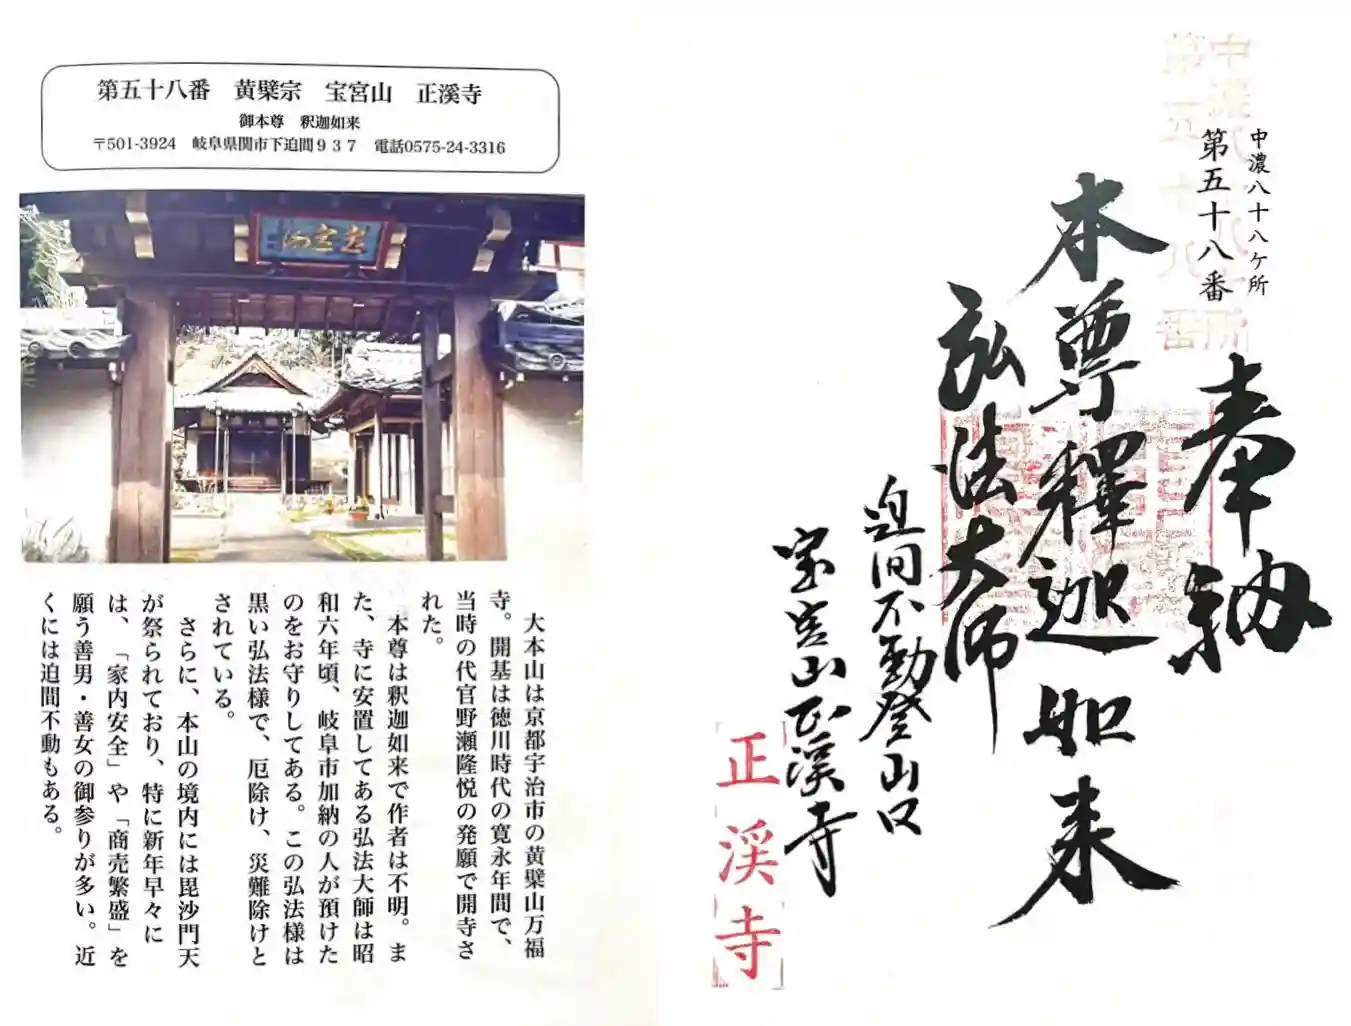 第五十八番　黄檗宗　宝宮山　正溪寺
御本尊　釈迦如来
〒501-3924　岐阜県関市下迫間９３７　電話0575-24-3316
大本山は京都宇治市の黄檗山万福
寺。開基は徳川時代の寛永年間で、
当時の代官野瀬隆悦の発願で開寺さ
れた。
本尊は釈迦如来で作者は不明。ま
た、寺に安置してある弘法大師は昭
和六年頃、岐阜市加納の人が預けた
のをお守りしてある。この弘法様は
黒い弘法様で、厄除け、災難除けと
されている。
さらに、本山の境内には毘沙門天
が祭られており、特に新年早々に
は、「家内安全」や「商売繁盛」を
願う善男・善女の御参りが多い。近
くには迫間不動もある。
中濃八十八ケ所
第五十八番
中濃八十八ケ所
第五十八番
奉納
本尊釋迦如来
弘法大师
迫间不動登山口
宝宮山正溪寺
正溪寺